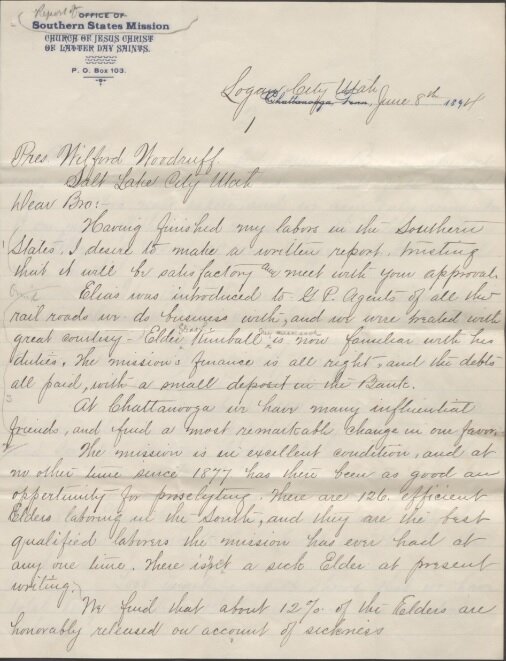 Report of
OFFICE OF
Southern States Mission
CHURCH OF JESUS CHRIST
OF LATTER DAY SAINTS.
P. O. Box 103.
Logan City Utah
Chattanooga, Tenn., June 8th 1894
1
Pres. Wilford Woodruff.
Salt Lake City Utah
Dear Bro:-
Having finished my labors in the Southern
States, I desire to make a written report, trusting
that it will be satisfactory and meet with your approval.
Elias was introduced to G. P. Agents of all the
rail roads we do business with, and we were treated with
great courtesy - Elder Kimball is now familiar with his
duties. The mission's finance is all right, and the debts
all paid, with a small deposit in the Bank.
At Chattanooga we have many influential
friends, and find a most remarkable change in our favor.
The mission is in excellent condition, and at
no other time since 1877 has there been as good an
opportunity for proselyting. There are 126. efficient
Elders laboring in the South, and they are the best
qualified laborers the mission has ever had at
any one time. There isn't a sick Elder at present
writing.
We find that about 12% of the Elders are
honorably released on account of sickness